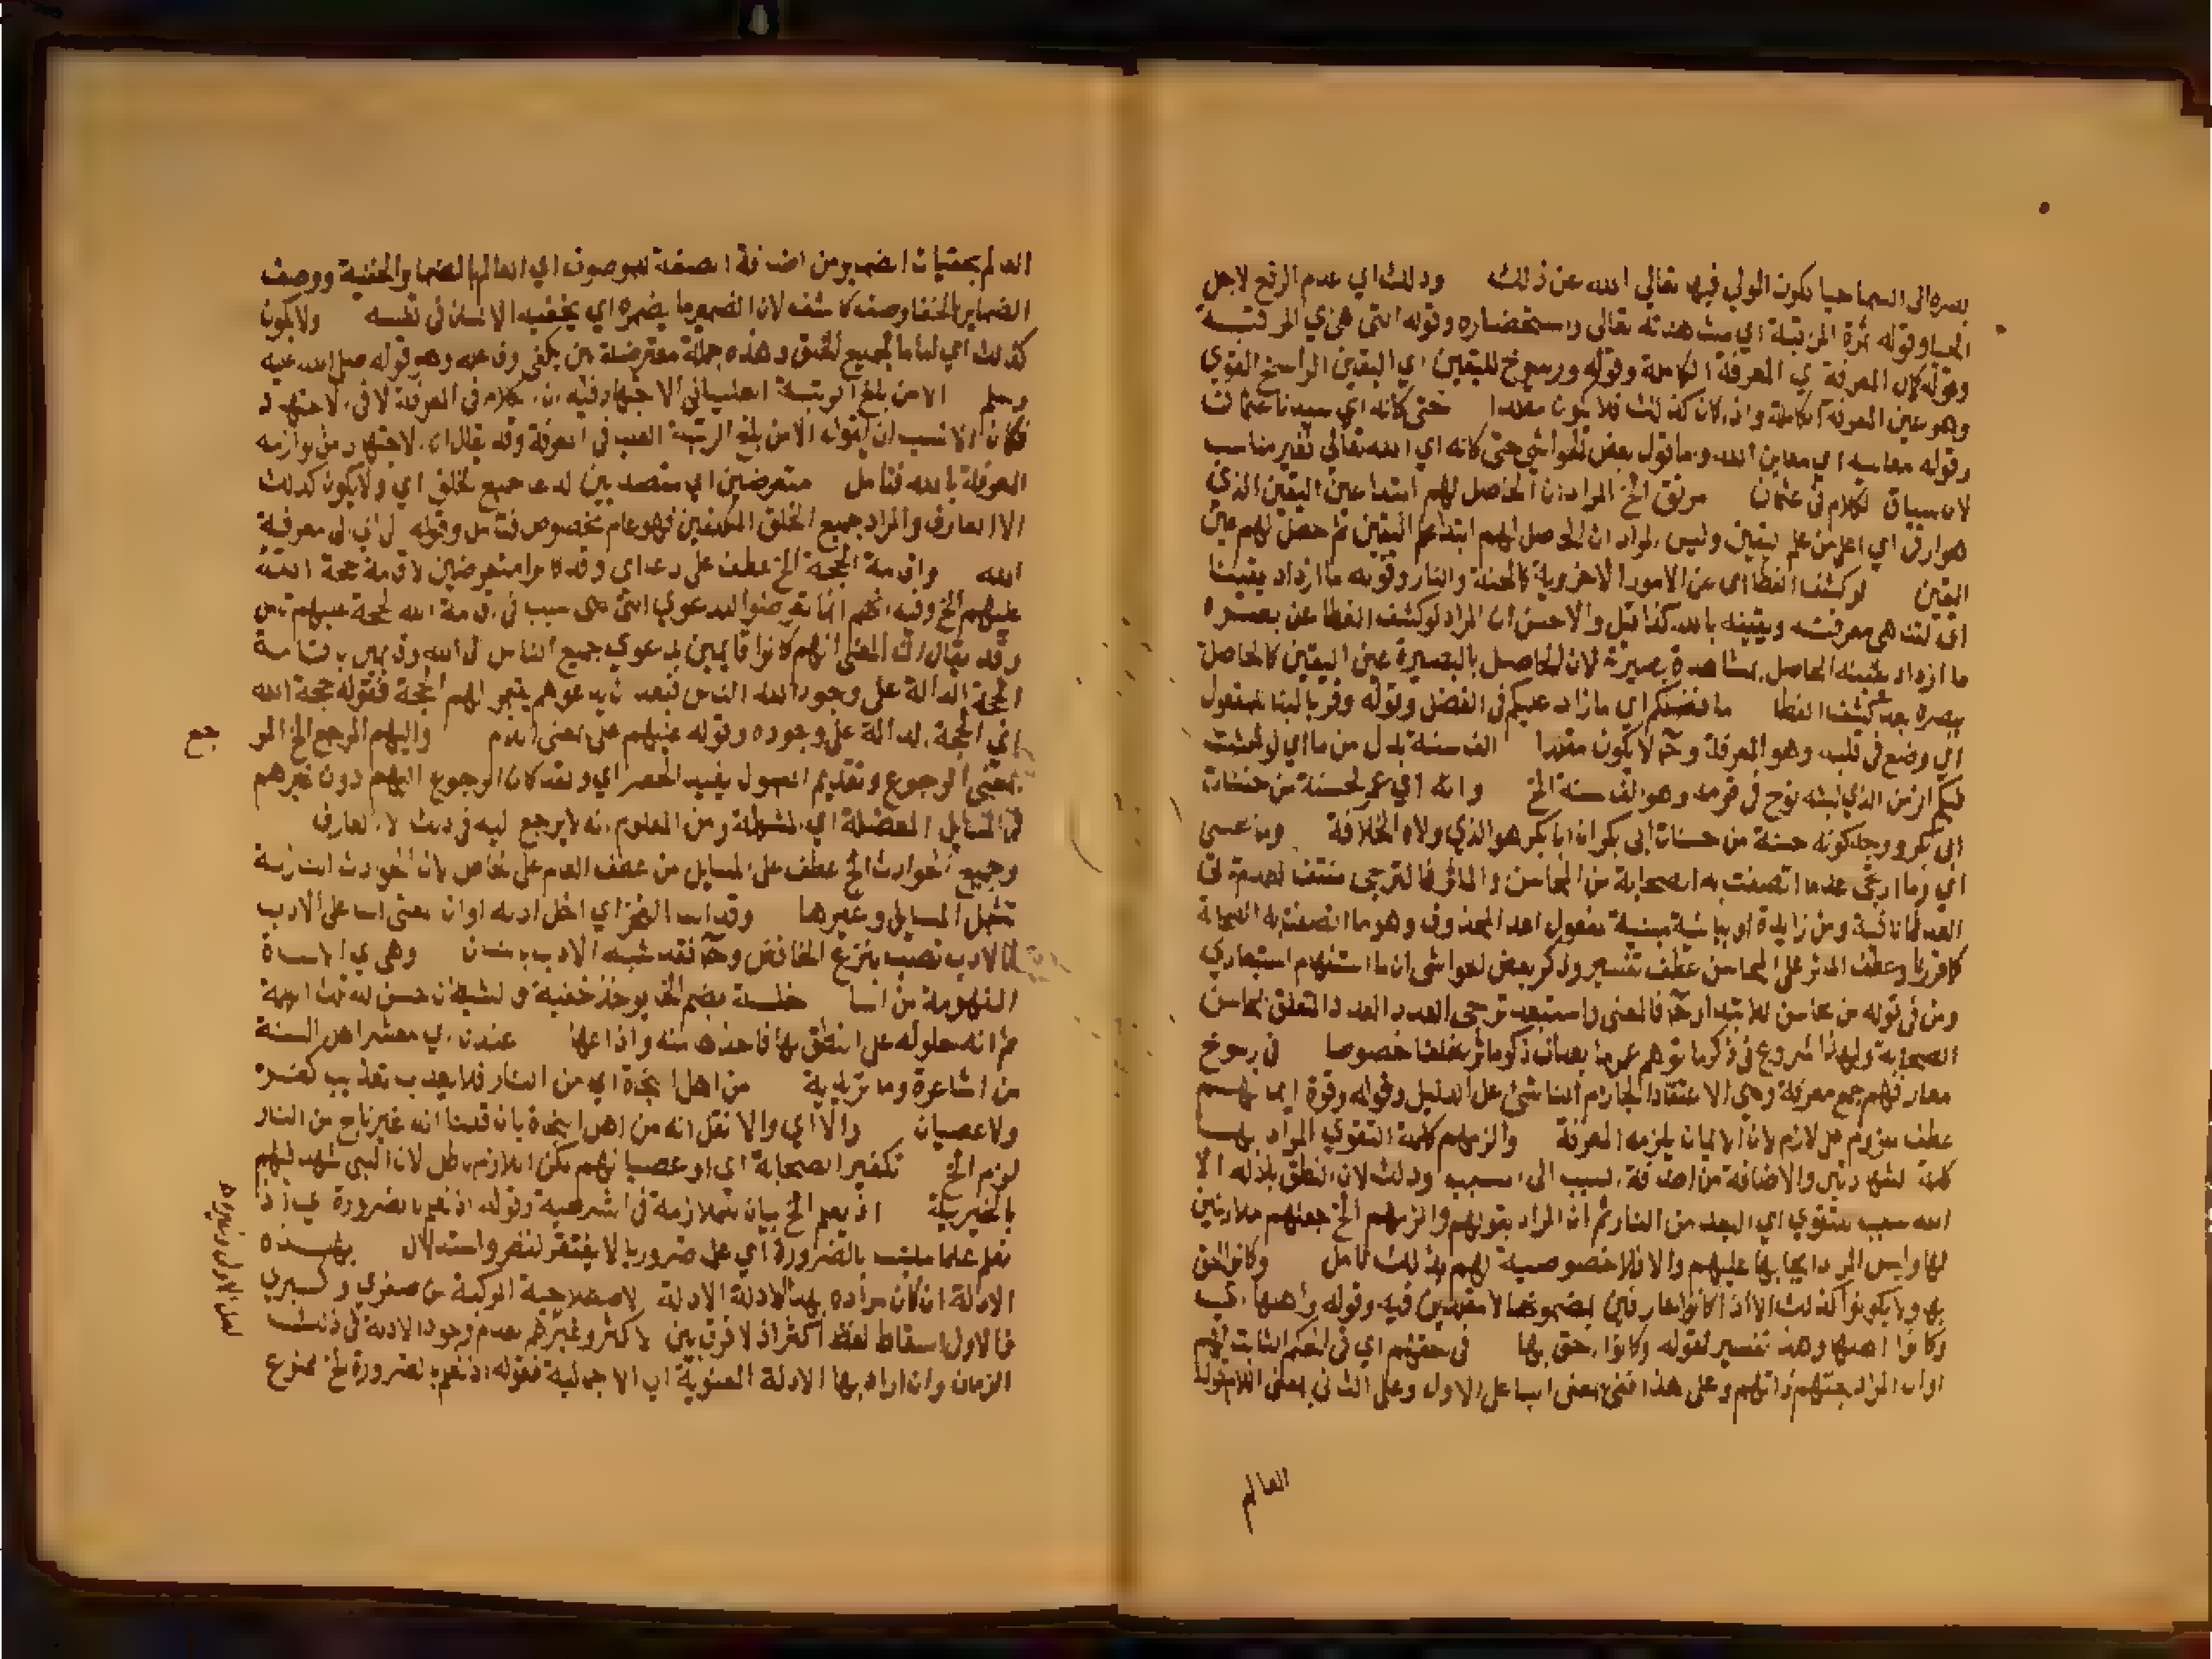 بصره الى السما حيا يكون المولي فيها تعالي الله عن ذلك وذلك اي عدم الرفع لاجل
الحيا وقوله ثمرة المراقبة اي مشاهدته تعالى واستحضاره وقوله التى هى اي المراقبة
وقوله كان المعرفة اي المعرفة الكاملة وقوله ورسوخ لليقين اي اليقين الراسخ القوي
وهو عين المعرفة الكاملة واذا كان كذلك فلا يكون مقلدا حتى كانه اي سيدنا عثمان
وقوله معاينه اي معاين الله وما قول بعض الحواشي حتى كانه اي الله تعالي فغير مناسب
لان سياق الكلام فى عثمان مرتق الخ المراد ان الحاصل لهم ابتدا عين اليقين الذي
هو ارقى اي اعلى من علم اليقين وليس المراد ان الحاصل لهم ابتدا علم اليقين ثم حصل لهم عين
اليقين لو كشف الغطا اى عن الامور الاخروية كالجنة والنار وقوله ما ازداد يقينا
اى الذي هى معرفته ويقينه بالله كذا قيل والاحسن ان المراد لو كشف الغطا عن بصره
ما ازداد يقينه الحاصل بمشاهدة بصيرته لان الحاصل بالبصيرة عين اليقين كالحاصل
ببصره بعد كشف الغطا ما فضلكم اي ما زاد عليكم فى الفضل وقوله وقر بالبنا للمفعول
اي وضع فى قلبه وهو المعرفة وح لا يكون مقلدا الف سنة بدل من ما اي لو لبثت
فيكم الزمن الذي لبثه نوح فى قومه وهو الف سنة الخ وانه اي عمر لحسنة من حسنات
ابى بكر ووجه كونه حسنة من حسنات ابى بكر ان ابا بكر هو الذي ولاه الخلافة وما عسى
اي وما ارجى عد ما اتصفت به الصحابة من المحاسن والماثر فالترجى منتف لعدم
العد فما نافية ومن زايدة او بيانية مبينة لمفعول اعد المحذوف وهو ما اتصفت به الصحابة
كما قررنا وعطف الماثر على المحاسن عطف تفسير وذكر بعض الحواشى ان ما استفهام استبعادية
ومن فى قوله من محاسن للابتدا وح فالمعنى واستبعد ترجى العدد المتعلق بمحاسن
الصحابة ولهذا شروع فى ذكر ما توهم عدمه بعد ان ذكر ماثر الخلفا خصوصا فى رسوخ
معارفهم جمع معرفة وهى الاعتقاد الجازم الناشئ عن الدليل وقوله وقوة ايمانهم
عطف ملزوم على لازم لان الايمان يلزمه المعرفة والزمهم كلمة التقوي المراد بها
كلمة الشهادتين والاضافة من اضافة السبب الى المسبب وذلك لان النطق بلا اله الا
الله سبب للتقوي اي البعد من النار ثم ان المراد بقولهم والزمهم الخ جعلهم ملازمين
لها وليس المراد ايجابها عليهم والا فلا خصوصية لهم بذلك تامل وكانوا احق
بها ولا يكونوا كذلك الا اذا كانوا عارفين بمضمونها لا مقلدين فيه وقوله واهلها اي
وكانوا اهلها وهذا تفسير لقوله وكانوا احق بها فى حقهم اي فى الحكم الثابت لهم
او ان المراد بحقهم ذاتهم وعلى هذا ففى بمعنى البا على الاول وعلى الثانى بمعنى اللام قوله
العالم
العالم بخفيات الضمير من اضافة الصفة للموصوف اي العالم بالضماير الخفية ووصف
الضماير بالخفا وصف كاشف لان الضمير ما يضمره اي يخفيه الانسان فى نفسه ولا يكون
كذلك اي اماما لجميع الخلق وهذه جملة معترضة بين يكفى وفاعله وهو قوله صلى الله عليه
وسلم الا من بلغ الرتبة العليا فى الاجتهاد فيه ان الكلام فى المعرفة لا فى الاجتهاد
فكان الانسب ان يقول الا من بلغ الرتبة العليا فى المعرفة وقد يقال ان الاجتهاد من لوازمه
المعرفة بالله فتامل متعرضين اي متصدين لدعا جميع الخلق اي ولا يكون كذلك
الا العارف والمراد جميع الخلق المكلفين فهو عام مخصوص فتامل وقوله الى الله اي الى معرفة
الله واقامة الحجة الخ عطف على دعا اى وقد كانوا متعرضين لاقامة حجة الله
عليهم الخ وفيه انهم انما تعرضوا للدعوي التى هى سبب فى اقامة الله الحجة عليهم تامل
وقد يقال ان المعنى انهم كانوا قايمين بدعوي جميع الناس الى الله وقايمين باقامة
الحجة الدالة على وجود الله الناس فبعد ان يدعوهم يقيموا لهم الحجة فقوله حجة الله
اي الحجة الدالة على وجوده وقوله عليهم على بمعنى اللام واليهم المرجع الخ المر
جع
بمعنى الرجوع وتقديم المعمول يفيد الحصر اي ولقد كان الرجوع اليهم دون غيرهم
فى المسايل المعضلة اي المشكلة ومن المعلوم انه لا يرجع اليه فى ذلك الا العارف
وجميع الحوادث الخ عطف على المسايل من عطف العام على الخاص لان الحوادث النازلة
تشمل المسايل وغيرها وقد اسا الفخر اي اخل ادبه او ان بمعنى اسا على الادب
فالادب نصب بنزع الخافض وح فقد شبه الادب بانسان وهى اي الاساة
المفهومة من اسا خلسة بضم الخا يوخذ خفية والشيطان حسن له تلك الكلمة
ثم انه تحيل له على النطق بها فاخذها منه واذاعها عندنا اي معشر اهل السنة
من اشاعرة وما تريدية من اهل النجاة اي من النار فلا يعذب تعذيب كفر
ولا عصيان والا اي والا نقل انه من اهل النجاة بان قلنا انه غير ناج من النار
لزم الخ تكفير الصحابة اى او عصيانهم لكن اللازم باطل لان النبى شهد لهم
بالخيرية اذ نعلم الخ بيان للملازمة فى الشرطية وقوله اذ نعلم بالضرورة اي اذ
نعلم علما ملتبسا بالضرورة اي علما ضروريا لا يفتقر لنظر واستدلال بهذه
الادلة ان كان مراده بهذه الادلة الادلة الاصطلاحية المركبة من صغري وكبري
فالاولى اسقاط لفظ اكثر اذ لا فرق بين الاكثر وغيرهم بعدم وجود الادلة فى ذلك
الزمان وان اراد بها الادلة المعنوية اي الاجمالية فقوله اذ نعلم بالضرورة الخ ممنوع